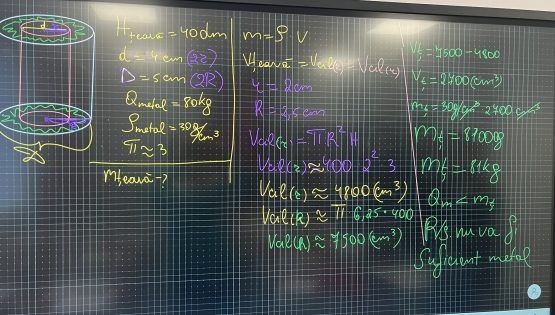 d
Hțeavă = 40 dm
d = 4 cm (2r)
D = 5 cm (2R)
Qmetal = 80 kg
ρmetal = 30 g/cm³
π ≈ 3
Mțeavă - ?
m = ρ V
Vțeavă = Val(R) - Val(r)
r = 2 cm
R = 2,5 cm
Val(r) = π R² H
Val(r) ≈ 400 · 2² · 3
Val(r) ≈ 4800 (cm³)
Val(R) ≈ π 6,25 · 400
Val(R) ≈ 7500 (cm³)
Vț = 7500 - 4800
Vț = 2700 (cm³)
mț = 30 g/cm³ · 2700 cm³
mț = 81000 g
mț = 81 kg
Qm < mț
R/s: nu va fi
suficient metal